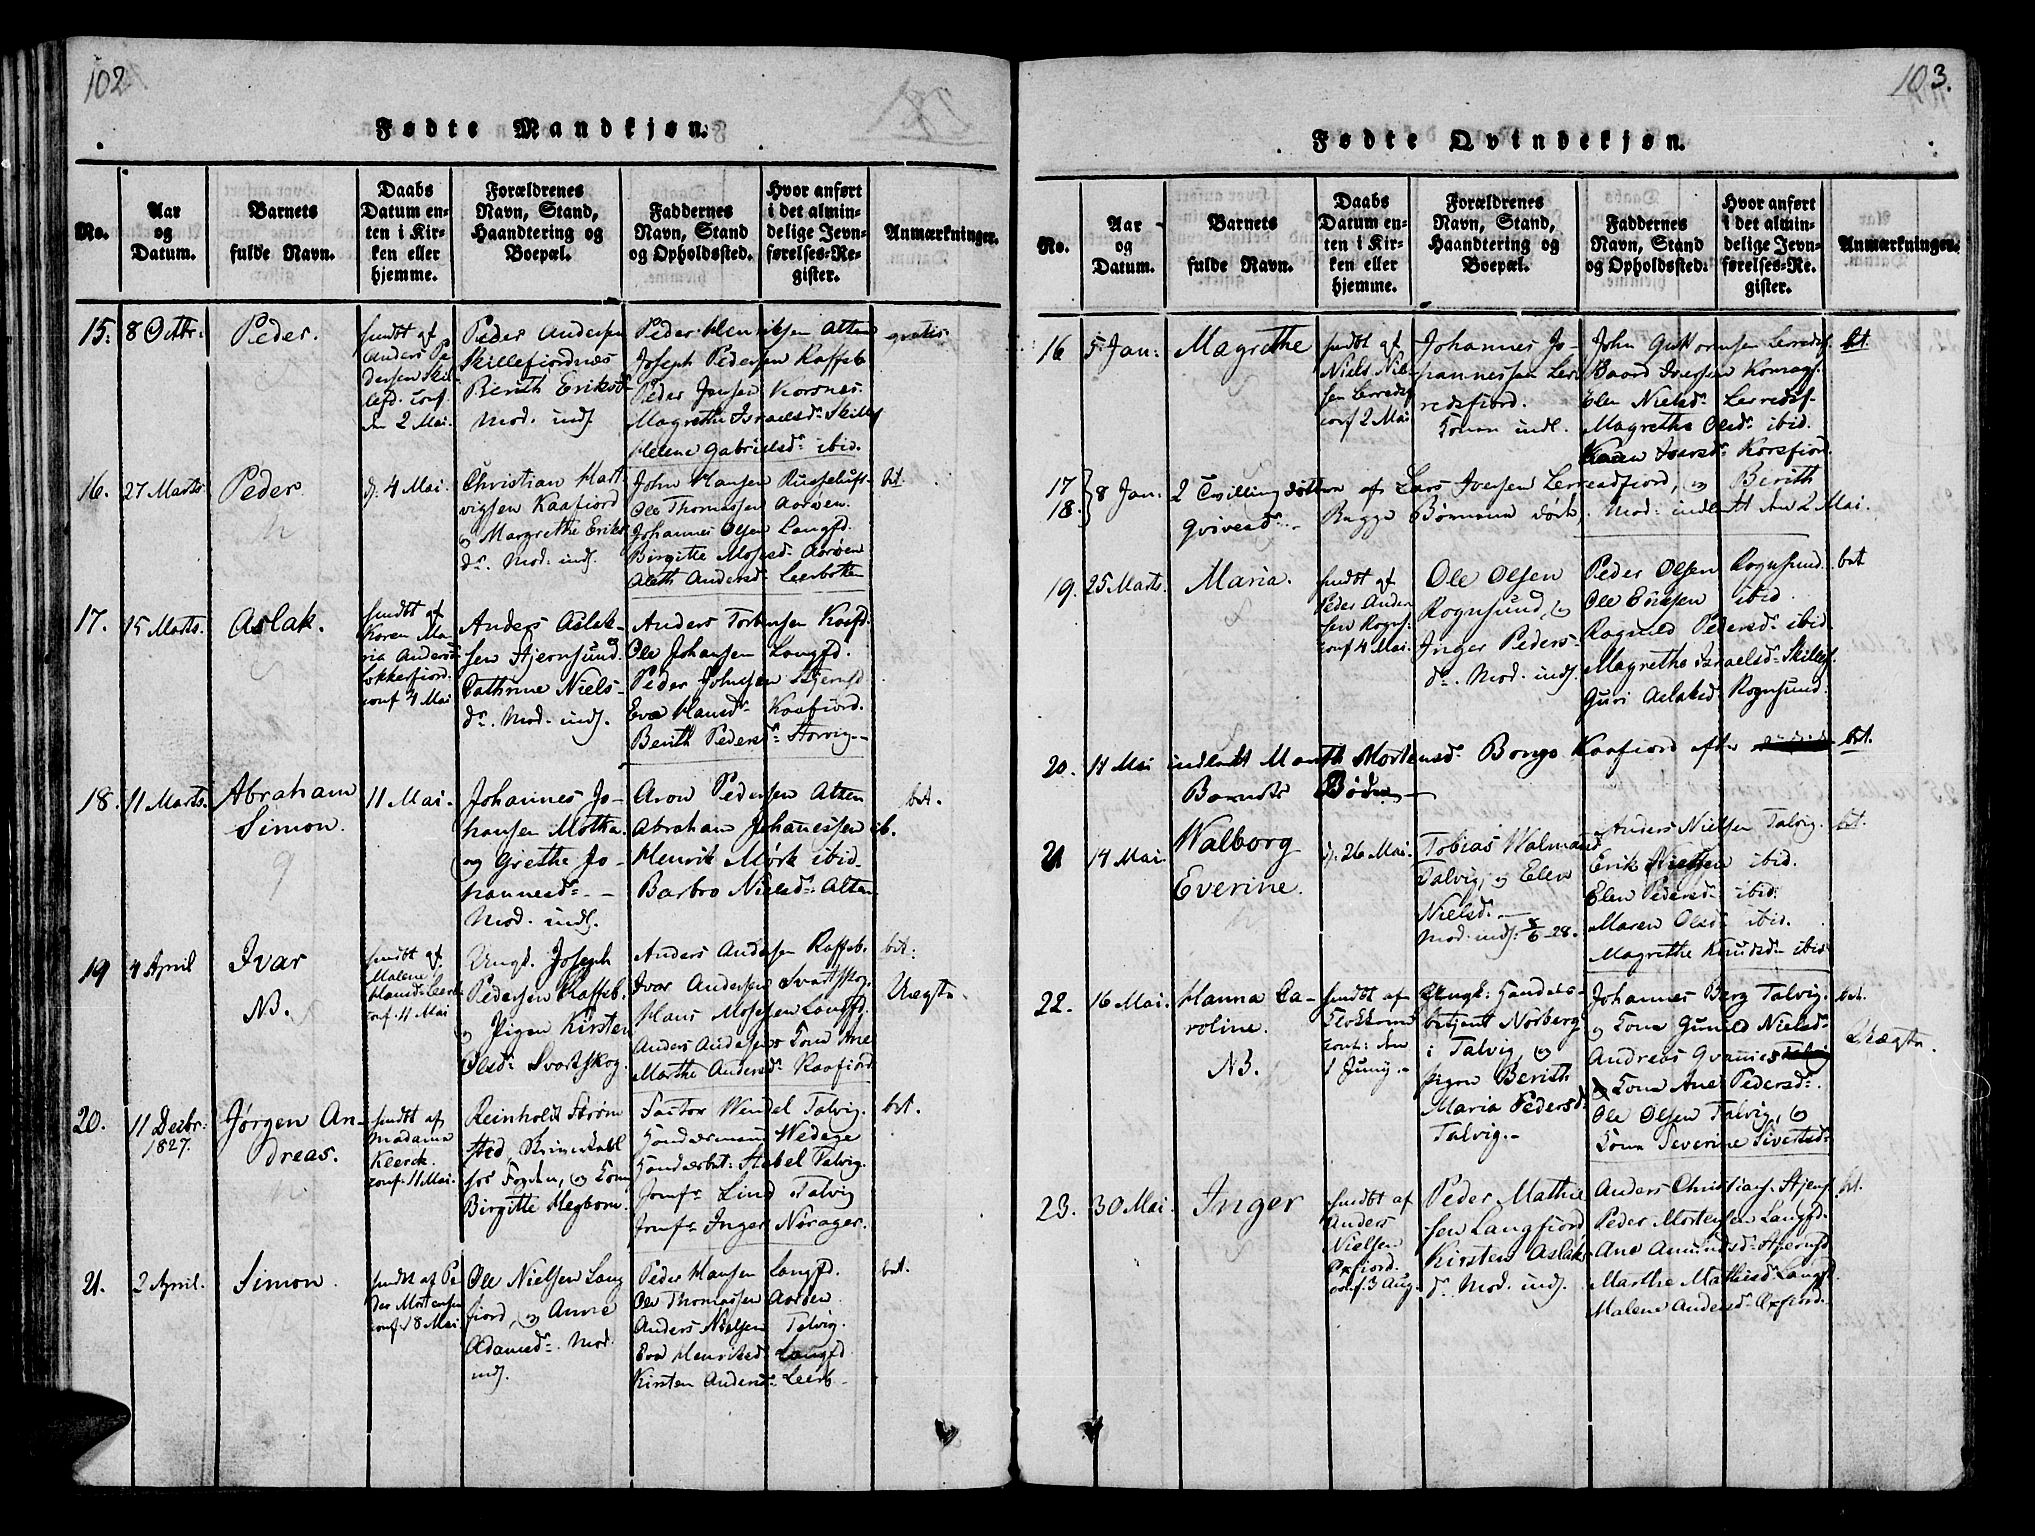 102
28
Fødte Mandkjøn.
No.
Aar
og
Datum.
Barnets
fulde Navn.
Daabs
Datum en-
ten i Kir-
ken eller
hjemme.
Forældrenes
Navn, Stand,
Haandtering og
Boepæl.
Faddernes
Navn, Stand
og Opholdssted.
Hvor anført
i det almin-
delige Jevn-
førelses-Re-
gister.
Anmærkninger.
15. 8 Octbr:
Peder.
hiemdt af
Anders Pe
dersen Skil
lefd. conf.
den 2 Mai.
Peder Andersen
Skillefiordnæs
Berith Eriksd
Mod. indl.
Peder Henriksen Alten
Joseph Pedersen Raffeb
Peder Jensen Korsnes
Magrethe Israelsd. Skillef
Helene Gabrielsd: ibid.
gratis
16. 27 Marts
Peder
d. 4 Mai.
Christian Hart
vigsen Kaafiord
og Margrethe Eriks
dr. Mod: indl.
John Hansen Russeluft
Ole Thomassen Aarøen.
Johannes Olsen Langfd.
Birgitte Mosesd. Aarøen
Aleth Andersd. Leerbotten
bt
17. 15 Marts.
Aslak.
hiemdt af
Karen Ma
ria Andersd
Lokkerfiord.
conf 4 Mai
Anders Aslak-
sen Stjernsund. og
Cathrine Niels-
dr. Mod. indl.
Anders Torbensen Kaafd.
Ole Johansen Langfd.
Peder Johnsen Stjernsd
Eva Hansd. Kaafiord.
Berith Pedersd: Storvig.
18. 11 Marts.
Abraham
Simon.
11 Mai.
Johannes Jo-
hansen Motka.
og Grethe Jo-
hannesd.
Mod. indl.
Aron Pedersen Alten
Abraham Johanessen ib.
Henrik Mørk ibid.
Barbro Nielsd: Alten
bet.
19 4 April
Ivar
NB.
hiemdt af
Malene
Hansd. Leerb
conf. 11 Mai
Ungk. Joseph
Pedersen Raffeb.
og Pigen Kirsten
Olsd: Svartskog.
Anders Andersen Raffeb.
Ivar Andersen Svartskog.
Hans Mosesen Langfd.
Anders Andersens Kona Ane
Marthe Andersd: Kaafiord
bet:
Uægte.
20. 11 Decbr:
1827.
Jørgen An-
dreas.
hiemdt af
Madame
Klerck.
conf. 11 Mai.
Reinholdt Strøm
sted,
hos Fogden, og Kone
Birgitte Hegbom.
Factor Wendel Talvig.
Handelsmand Wedege
Handelsbet: Stabel Talvig.
Jomfr Lind Talvig
Jomfr Inger Norager.
bet.
21. 2 April.
Simon.
hiemdt af Pe
der Mortensen
conf. 18 Mai.
Ole Nielsen Lang
fiord, og Anne
Adamsd. Mod.
indl.
Peder Hansen Langfd.
Ole Thomassen Aarøen.
Anders Nielsen Talvig.
Eva Henriksd. Langfd
Kirsten Andersd. Leerb
bet.
103.
Fødte Qvindekjøn.
No.
Aar
og
Datum.
Barnets
fulde Navn.
Daabs
Datum en-
ten i Kir-
ken eller
hjemme.
Forældrenes
Navn, Stand,
Haandtering og
Boepæl.
Faddernes
Navn, Stand
og Opholdssted.
Hvor anført
i det almin-
delige Jevn-
førelses-Re-
gister.
Anmærkninger.
16 5 Jan:
Magrethe
hiemdt af
Niels Niel-
sen Lerredsf
conf 2 Mai
Johannes Jo-
hannessen Ler
redsfiord.
Konen indl.
John Guttormsen Lerredsf
Baard Iversen Komagf.
Elen Nielsd: Lerredsf.
Magrethe Olsd: ibid.
Karen Iversd: Korsfiord.
bt.
17
18. } 8 Jan: 2 Tvillingdøttre af Lars Iversen Lerredfiord, og Berith
Qvivesd. Begge Børnene døde, Mod: indledt den 2 Mai.
19. 25 Marts.
Maria.
hiemdt af
Peder Ander
sen Rogns:
conf 4 Mai.
Ole Olsen
Rognsund, og
Inger Peders-
dr. Mod. indl.
Peder Olsen Rognsund.
Ole Ericsen ibid.
Ragnild Pedersd. ibid.
Magrethe Israelsd. Skillef.
Guri Aslaksd: Rognsund.
bet
20. 11 Mai indledt Marith Mortensd: Bongo Kaafiord efter
Barnets Død.
bet.
21 14 Mai.
Walborg
Everine.
d. 26 Mai.
Tobias Walmand
Talvig, og Elen
Nielsd.
Mod: indl: 8/6 28.
Anders Nielsen Talvig.
Erik Nielsen ibid.
Elen Pedersd. ibid.
Maren Olsd: ibid.
Magrethe Knudsd: ibid
bt.
22. 16 Mai.
Hanna Ca-
roline.
NB.
hiemdt af
Klokkeren
conf: den
1 Juny.
Ungk: Handels-
betjent Norberg
i Talvig, og
pigen Berith
Maria Pedersd:
Talvig.
Johannes Berg Talvig.
og Kona Gunild Nielsd.
Andreas Qvænnes Talvig
og Kona Ane Pedersd.
Ole Olsen Talvig, og
Kona Severine Sivertsd:
bet.
Uægte.
23. 30 Mai.
Inger
hiemdt af
Anders
Nielsen
Oxfiord.
conf. 3 Aug.
Peder Mathie
sen Langfiord
Kirsten Aslaks-
dr. Mod. indl.
Anders Christians. Stjern
Peder Mortensen Langfd.
Ane Amundsd. Stjernsd
Marthe Mathisd. Langfd.
Malene Andersd. Oxfiord.
bt.